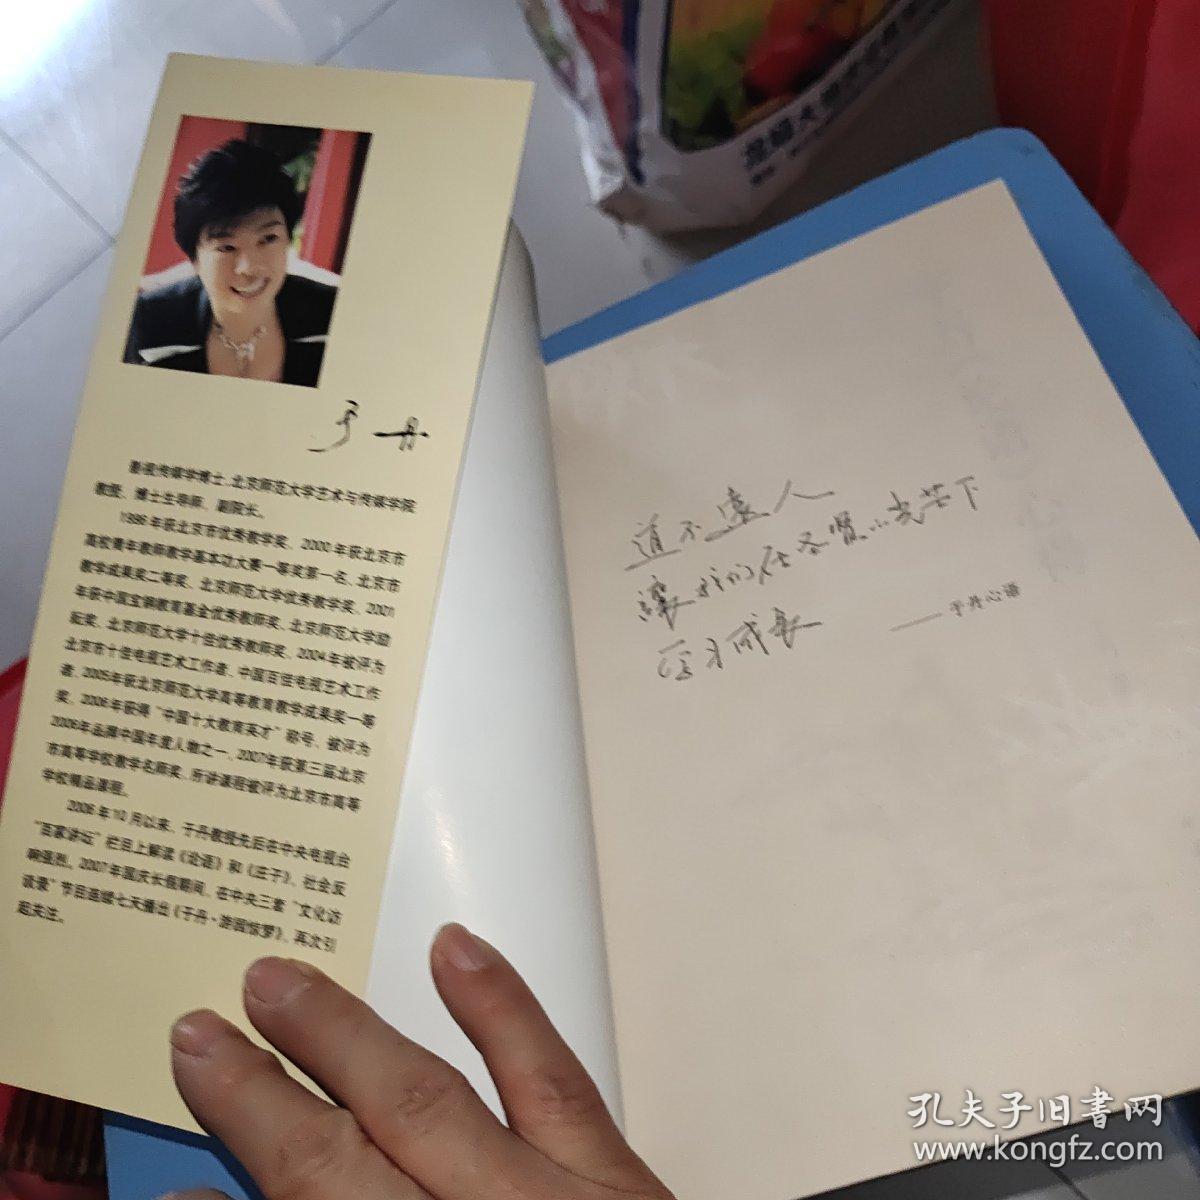 于丹
影视传媒学博士，北京师范大学艺术与传媒学院
教授、博士生导师，副院长。
1996年获北京市优秀教学奖，2000年获北京市
高校青年教师教学基本功大赛一等奖第一名、北京市
教学成果奖二等奖、北京师范大学优秀教学奖，2001
年获中国宝钢教育基金优秀教师奖、北京师范大学励
耘奖、北京师范大学十佳优秀教师奖，2004年被评为
北京市十佳电视艺术工作者、中国百佳电视艺术工作
者，2005年获北京师范大学高等教育教学成果奖一等
奖，2006年获得“中国十大教育英才”称号，被评为
2006年品牌中国年度人物之一，2007年获第三届北京
市高等学校教学名师奖，所讲课程被评为北京市高等
学校精品课程。
2006年10月以来，于丹教授先后在中央电视台
“百家讲坛”栏目上解读《论语》和《庄子》，社会反
响强烈。2007年国庆长假期间，在中央三套“文化访
谈录”节目连续七天播出《于丹·游园惊梦》，再次引
起关注。
道不远人
讓我们在圣贤的光芒下
学习成长
——于丹心语
孔夫子旧書网
www.kongfz.com